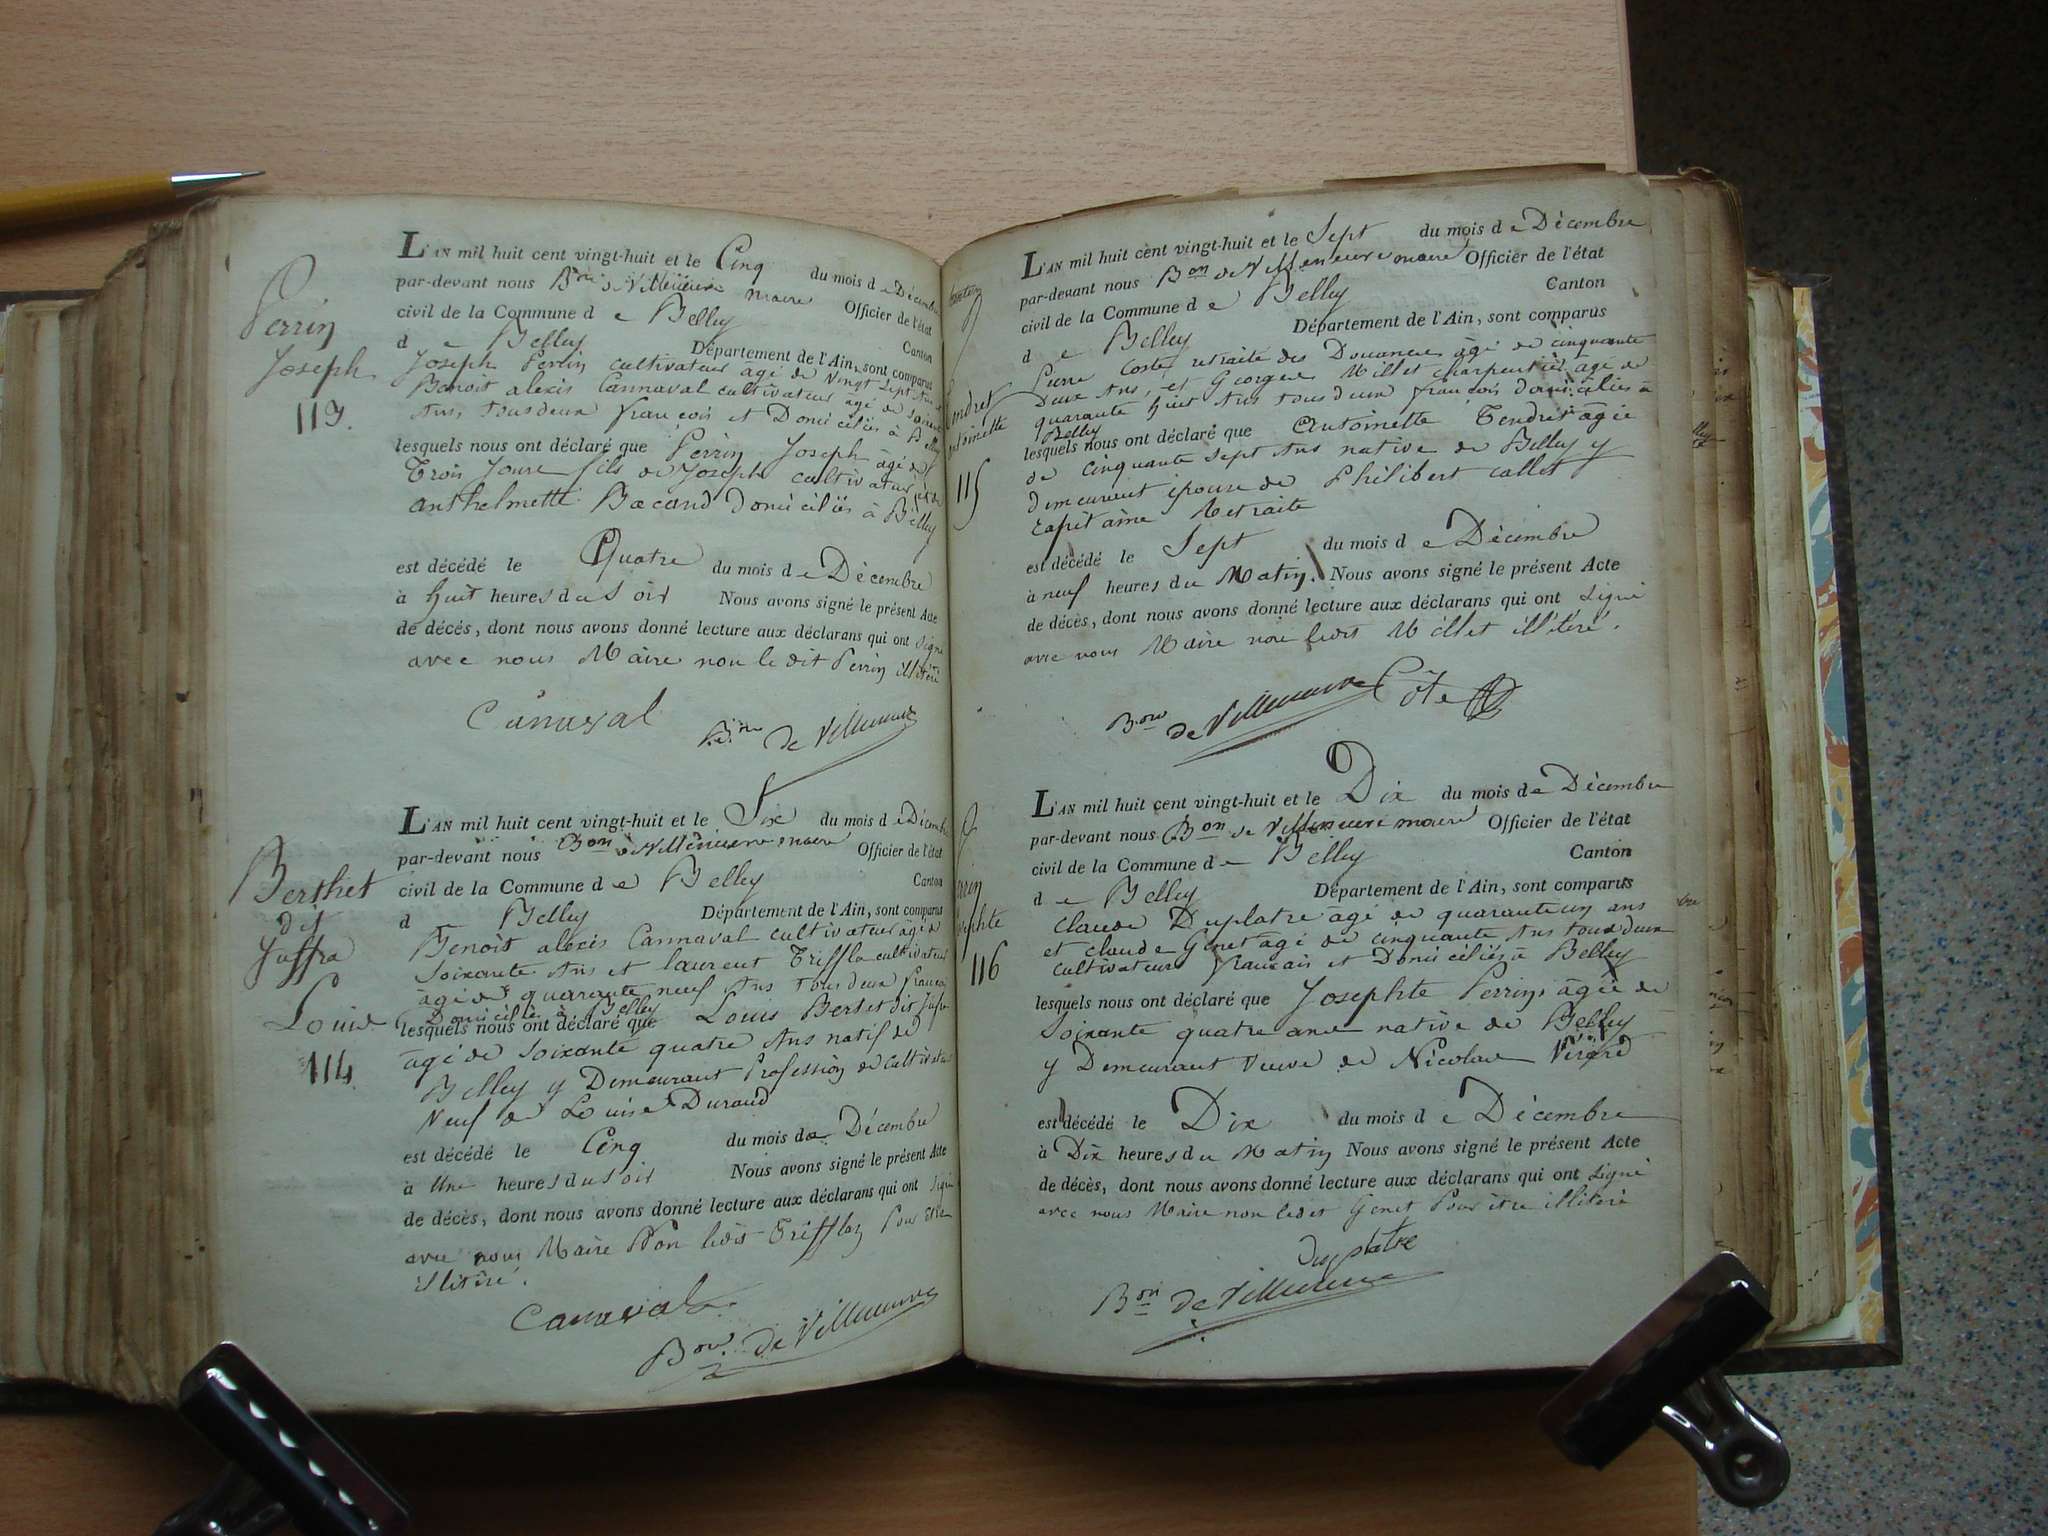 Perrin
Joseph
113.
L'AN mil huit cent vingt-huit et le Cinq du mois de Décembre
par-devant nous Bon de Villeneuve maire Officier de l'état
civil de la Commune de Belley Canton
de Belley Département de l'Ain, sont comparus
Joseph Perrin cultivateur âgé de vingt sept ans
Benoit alexis Cannaval cultivateur âgé de soixante
Ans tous deux français et Domiciliés à Belley
lesquels nous ont déclaré que Perrin Joseph âgé de
Trois Jours fils de Joseph cultivateur et de
anthelmette Bocand domiciliés à Belley
est décédé le Quatre du mois de Décembre
à huit heures du Soir Nous avons signé le présent Acte
de décès, dont nous avons donné lecture aux déclarans qui ont signé
avec nous Maire non le dit Perrin illitéré
Canaval
Bon de Villeneuve
Berthet
dit
Juffra
Louis
114.
L'AN mil huit cent vingt-huit et le Six du mois de Décembre
par-devant nous Bon de Villeneuve maire Officier de l'état
civil de la Commune de Belley Canton
d Belley Département de l'Ain, sont comparus
Benoit alexis Cannaval cultivateur âgé de
soixante Ans et laurent Triffla cultivateur
âgé de quarante neuf Ans tous deux français
Domiciliés à Belley
lesquels nous ont déclaré que Louis Berthet dit
âgé de soixante quatre Ans natif de
Belley y Demeurant Profession de Cultivateur
Veuf de Louise Durand
est décédé le Cinq du mois de Décembre
à Une heures du soir Nous avons signé le présent Acte
de décès, dont nous avons donné lecture aux déclarans qui ont signé
avec nous Maire Non ledit Trifflaz Pour être
illitéré.
Canaval
Bon de Villeneuve
115
L'AN mil huit cent vingt-huit et le Sept du mois de Décembre
par-devant nous Bon de Villeneuve maire Officier de l'état
civil de la Commune de Belley Canton
de Belley Département de l'Ain, sont comparus
Pierre Coste retraité des Douanes âgé de cinquante
Deux Ans, et George Millet charpentier âgé de
quarante huit Ans tous deux français domiciliés à
Belley
lesquels nous ont déclaré que Antoinette Tendret âgée
de cinquante sept Ans native de Belley y
demeurant épouse de Philibert callet
capitaine Retraite
est décédé le Sept du mois de Décembre
à neuf heures du Matin. Nous avons signé le présent Acte
de décès, dont nous avons donné lecture aux déclarans qui ont signé
avec nous Maire non ledit Millet illitéré.
Bon de Villeneuve Côte
116
L'AN mil huit cent vingt-huit et le Dix du mois de Décembre
par-devant nous Bon de Villeneuve maire Officier de l'état
civil de la Commune de Belley Canton
de Belley Département de l'Ain, sont comparus
Claude Duplatre âgé de quarante un ans
et claude Genet âgé de cinquante Ans tous deux
cultivateurs français et Domiciliés à Belley
lesquels nous ont déclaré que Josephte Perrin âgée de
soixante quatre ans native de Belley
y Demeurant Veuve de Nicolas
est décédé le Dix du mois de Décembre
à Dix heures du Matin Nous avons signé le présent Acte
de décès, dont nous avons donné lecture aux déclarans qui ont signé
avec nous Maire non ledit Genet Pour être illitéré
Duplatre
Bon de Villeneuve